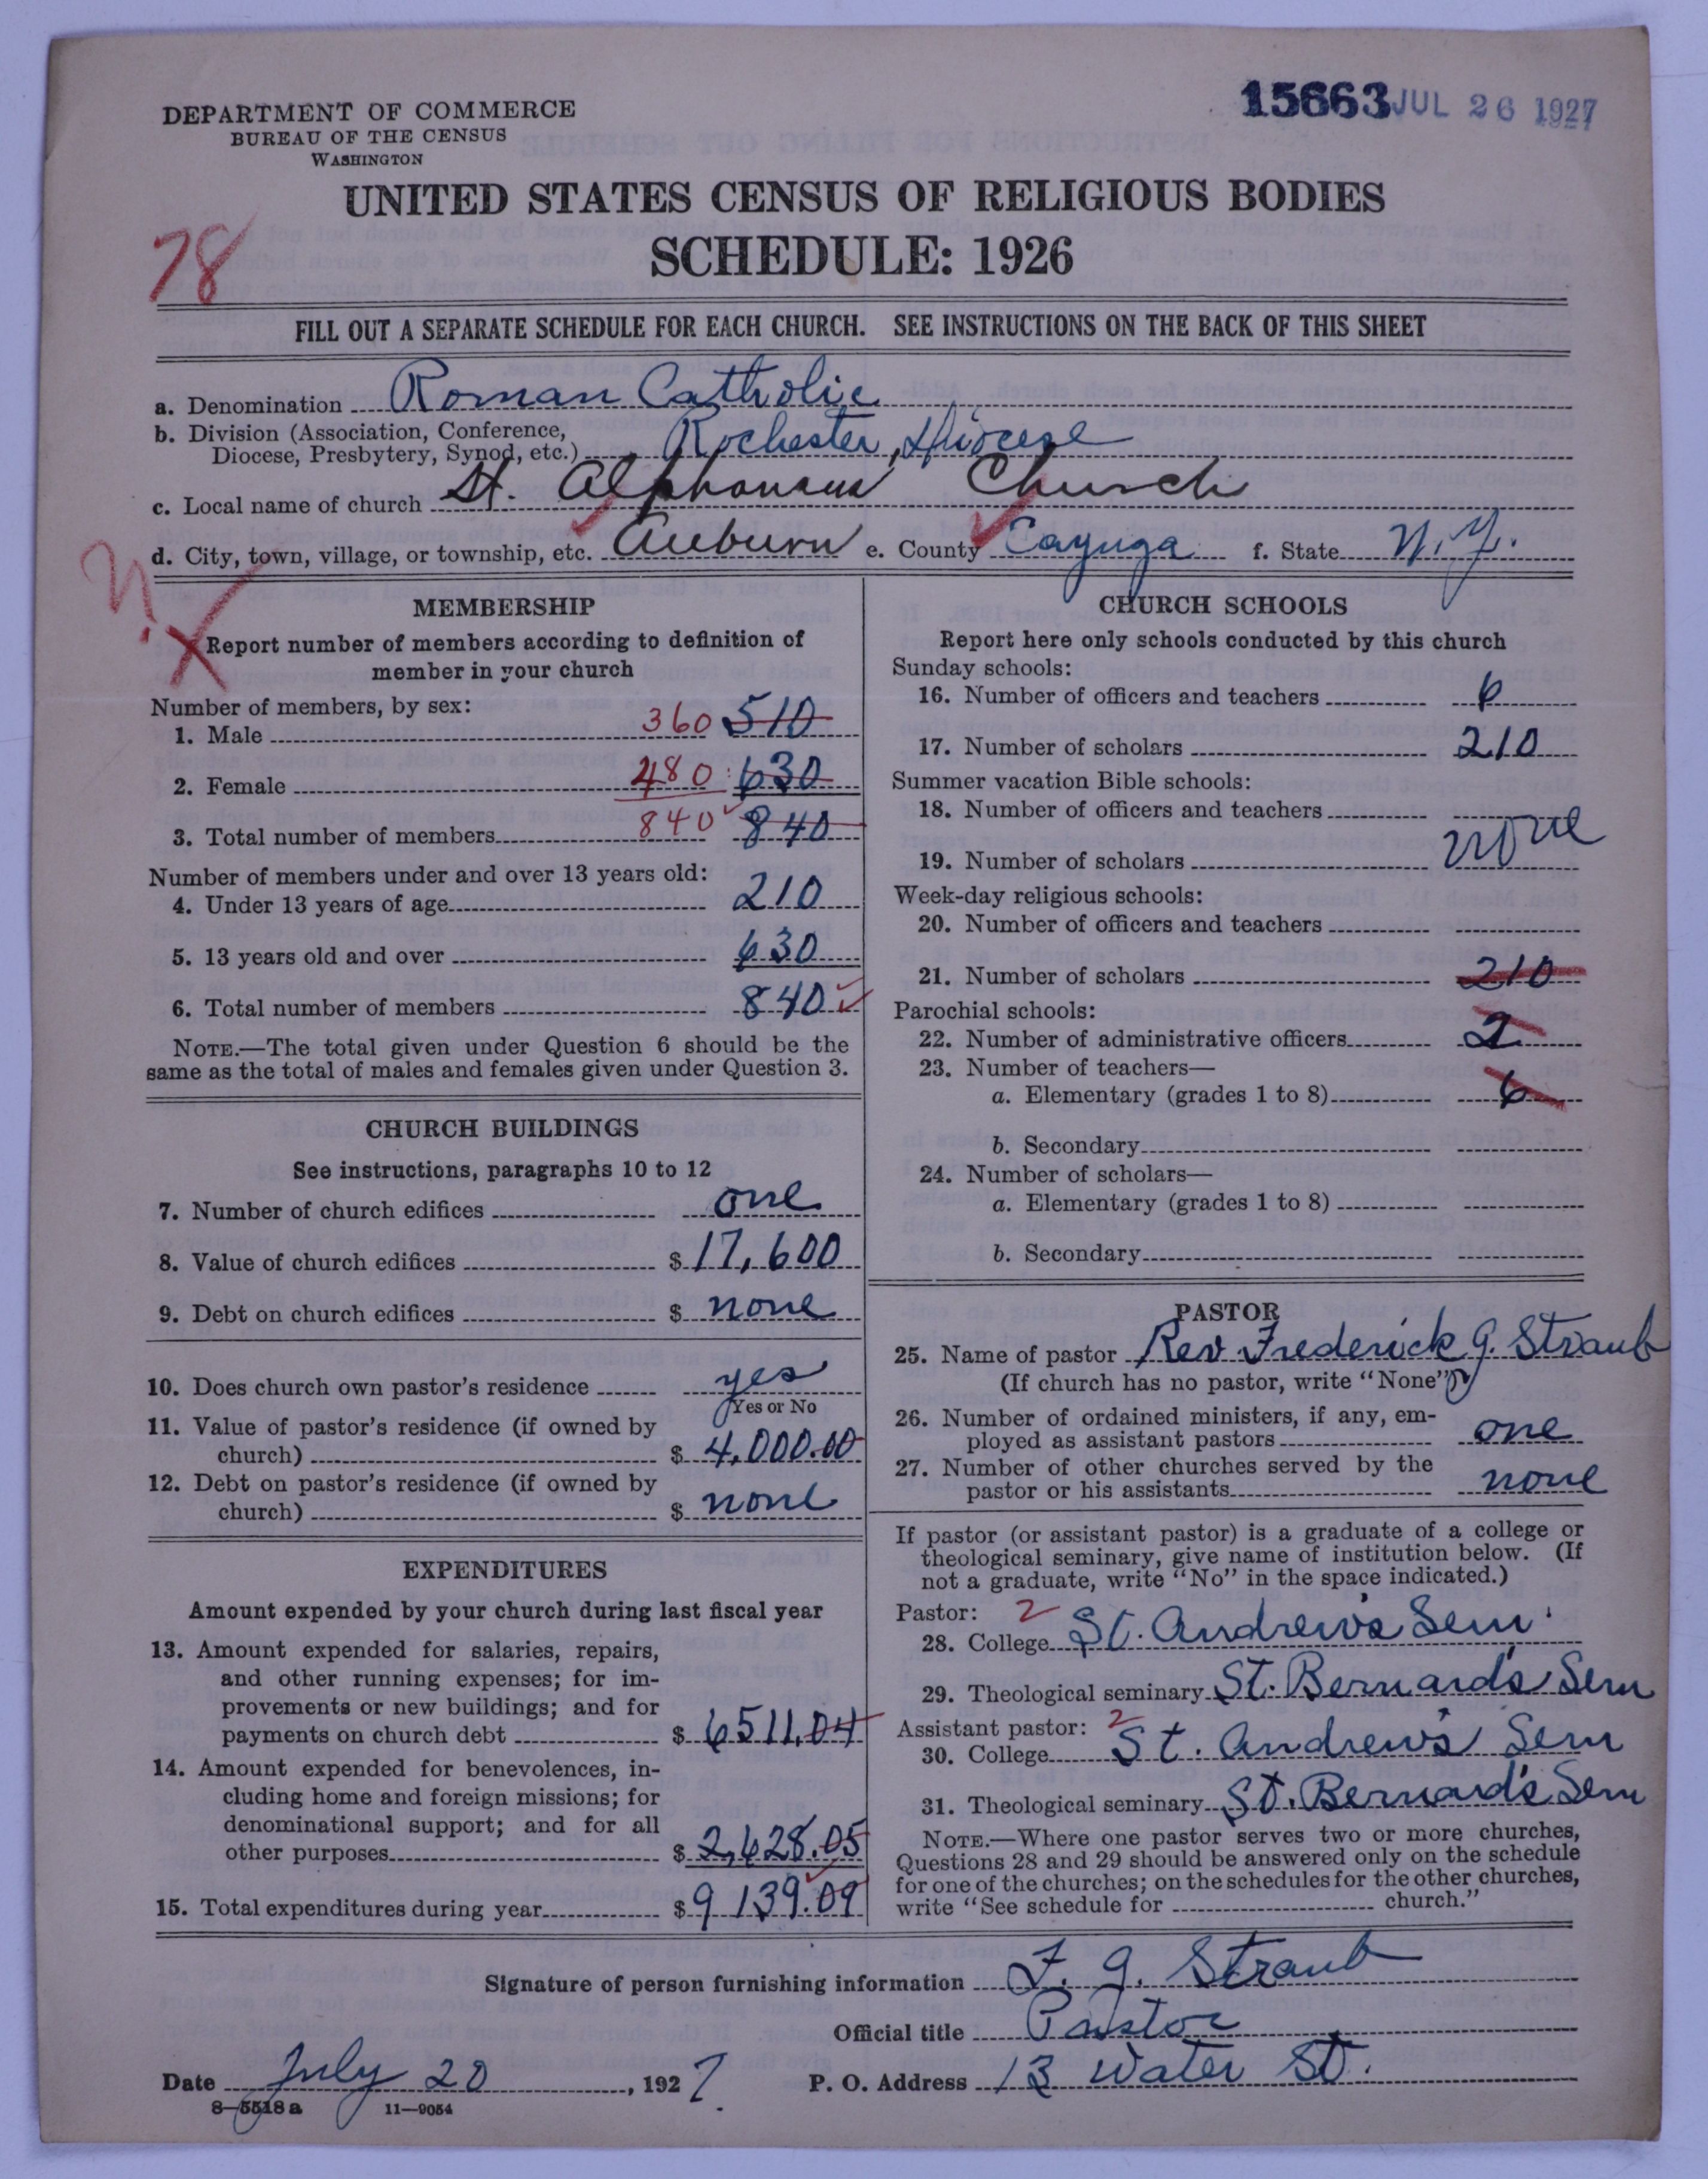 15663 JUL 26 1927
DEPARTMENT OF COMMERCE
BUREAU OF THE CENSUS
WASHINGTON
UNITED STATES CENSUS OF RELIGIOUS BODIES
78
SCHEDULE: 1926
FILL OUT A SEPARATE SCHEDULE FOR EACH CHURCH. SEE INSTRUCTIONS ON THE BACK OF THIS SHEET
a. Denomination Roman Catholic
b. Division (Association, Conference,
Diocese, Presbytery, Synod, etc.) Rochester, Diocese
c. Local name of church St. Alphonsus Church
d. City, town, village, or township, etc. Auburn e. County Cayuga f. State N.Y.
MEMBERSHIP
Report number of members according to definition of
member in your church
Number of members, by sex:
1. Male 360 510
2. Female 480 630
3. Total number of members 840 840
Number of members under and over 13 years old:
4. Under 13 years of age 210
5. 13 years old and over 630
6. Total number of members 840
NOTE.—The total given under Question 6 should be the
same as the total of males and females given under Question 3.
CHURCH BUILDINGS
See instructions, paragraphs 10 to 12
7. Number of church edifices one
8. Value of church edifices $ 17,600
9. Debt on church edifices $ none
10. Does church own pastor's residence yes
Yes or No
11. Value of pastor's residence (if owned by
church) $ 4,000.00
12. Debt on pastor's residence (if owned by
church) $ none
EXPENDITURES
Amount expended by your church during last fiscal year
13. Amount expended for salaries, repairs,
and other running expenses; for im-
provements or new buildings; and for
payments on church debt $ 6511.04
14. Amount expended for benevolences, in-
cluding home and foreign missions; for
denominational support; and for all
other purposes $ 2,628.05
15. Total expenditures during year $ 9139.09
CHURCH SCHOOLS
Report here only schools conducted by this church
Sunday schools:
16. Number of officers and teachers 6
17. Number of scholars 210
Summer vacation Bible schools:
18. Number of officers and teachers
19. Number of scholars none
Week-day religious schools:
20. Number of officers and teachers
21. Number of scholars 210
Parochial schools:
22. Number of administrative officers 2
23. Number of teachers—
a. Elementary (grades 1 to 8) 6
b. Secondary
24. Number of scholars—
a. Elementary (grades 1 to 8)
b. Secondary
PASTOR
25. Name of pastor Rev. Frederick G. Straub
(If church has no pastor, write "None")
26. Number of ordained ministers, if any, em-
ployed as assistant pastors one
27. Number of other churches served by the
pastor or his assistants none
If pastor (or assistant pastor) is a graduate of a college or
theological seminary, give name of institution below. (If
not a graduate, write "No" in the space indicated.)
Pastor: 2
28. College St. Andrew's Sem.
29. Theological seminary St. Bernard's Sem
Assistant pastor: 2
30. College St. Andrew's Sem
31. Theological seminary St. Bernard's Sem
NOTE.—Where one pastor serves two or more churches,
Questions 28 and 29 should be answered only on the schedule
for one of the churches; on the schedules for the other churches,
write "See schedule for church."
Signature of person furnishing information F. G. Straub
Official title Pastor
Date July 20, 1927 P. O. Address 13 Water St.
8—5518a 11—9054